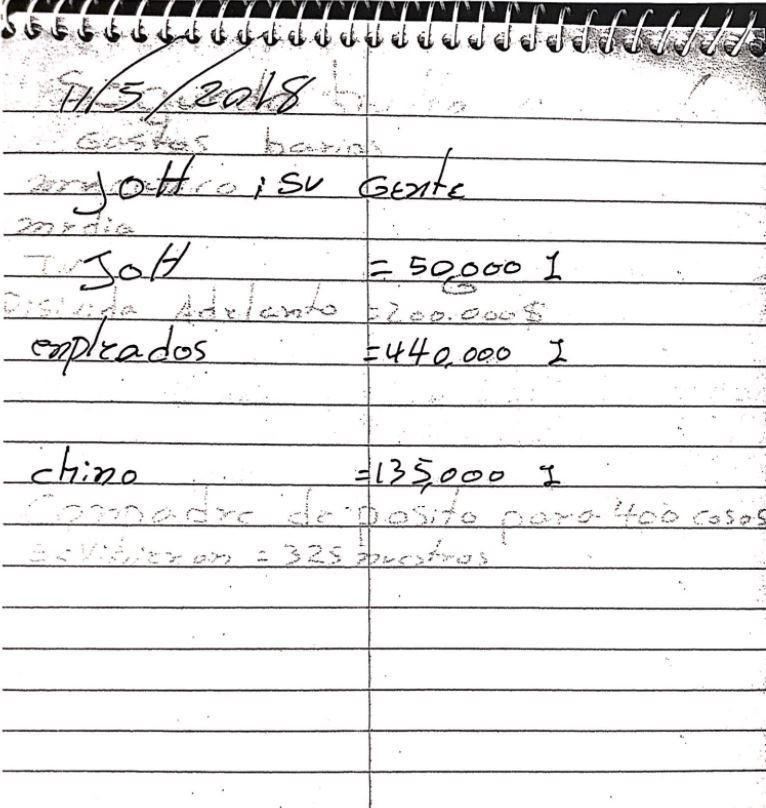 11/5/2018
Gastos barios
JOH i SU Gente
media
JOH = 50,000 I
Adelanto =200.000$
empleados =440,000 I
chino =135,000 I
Comadre deposito para 400 cosas
= 325 nuestros